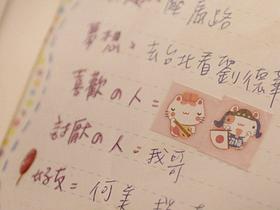 壓馬路
夢想：去台北看劉德華
喜歡の人＝
討厭の人＝我哥
好友＝何美